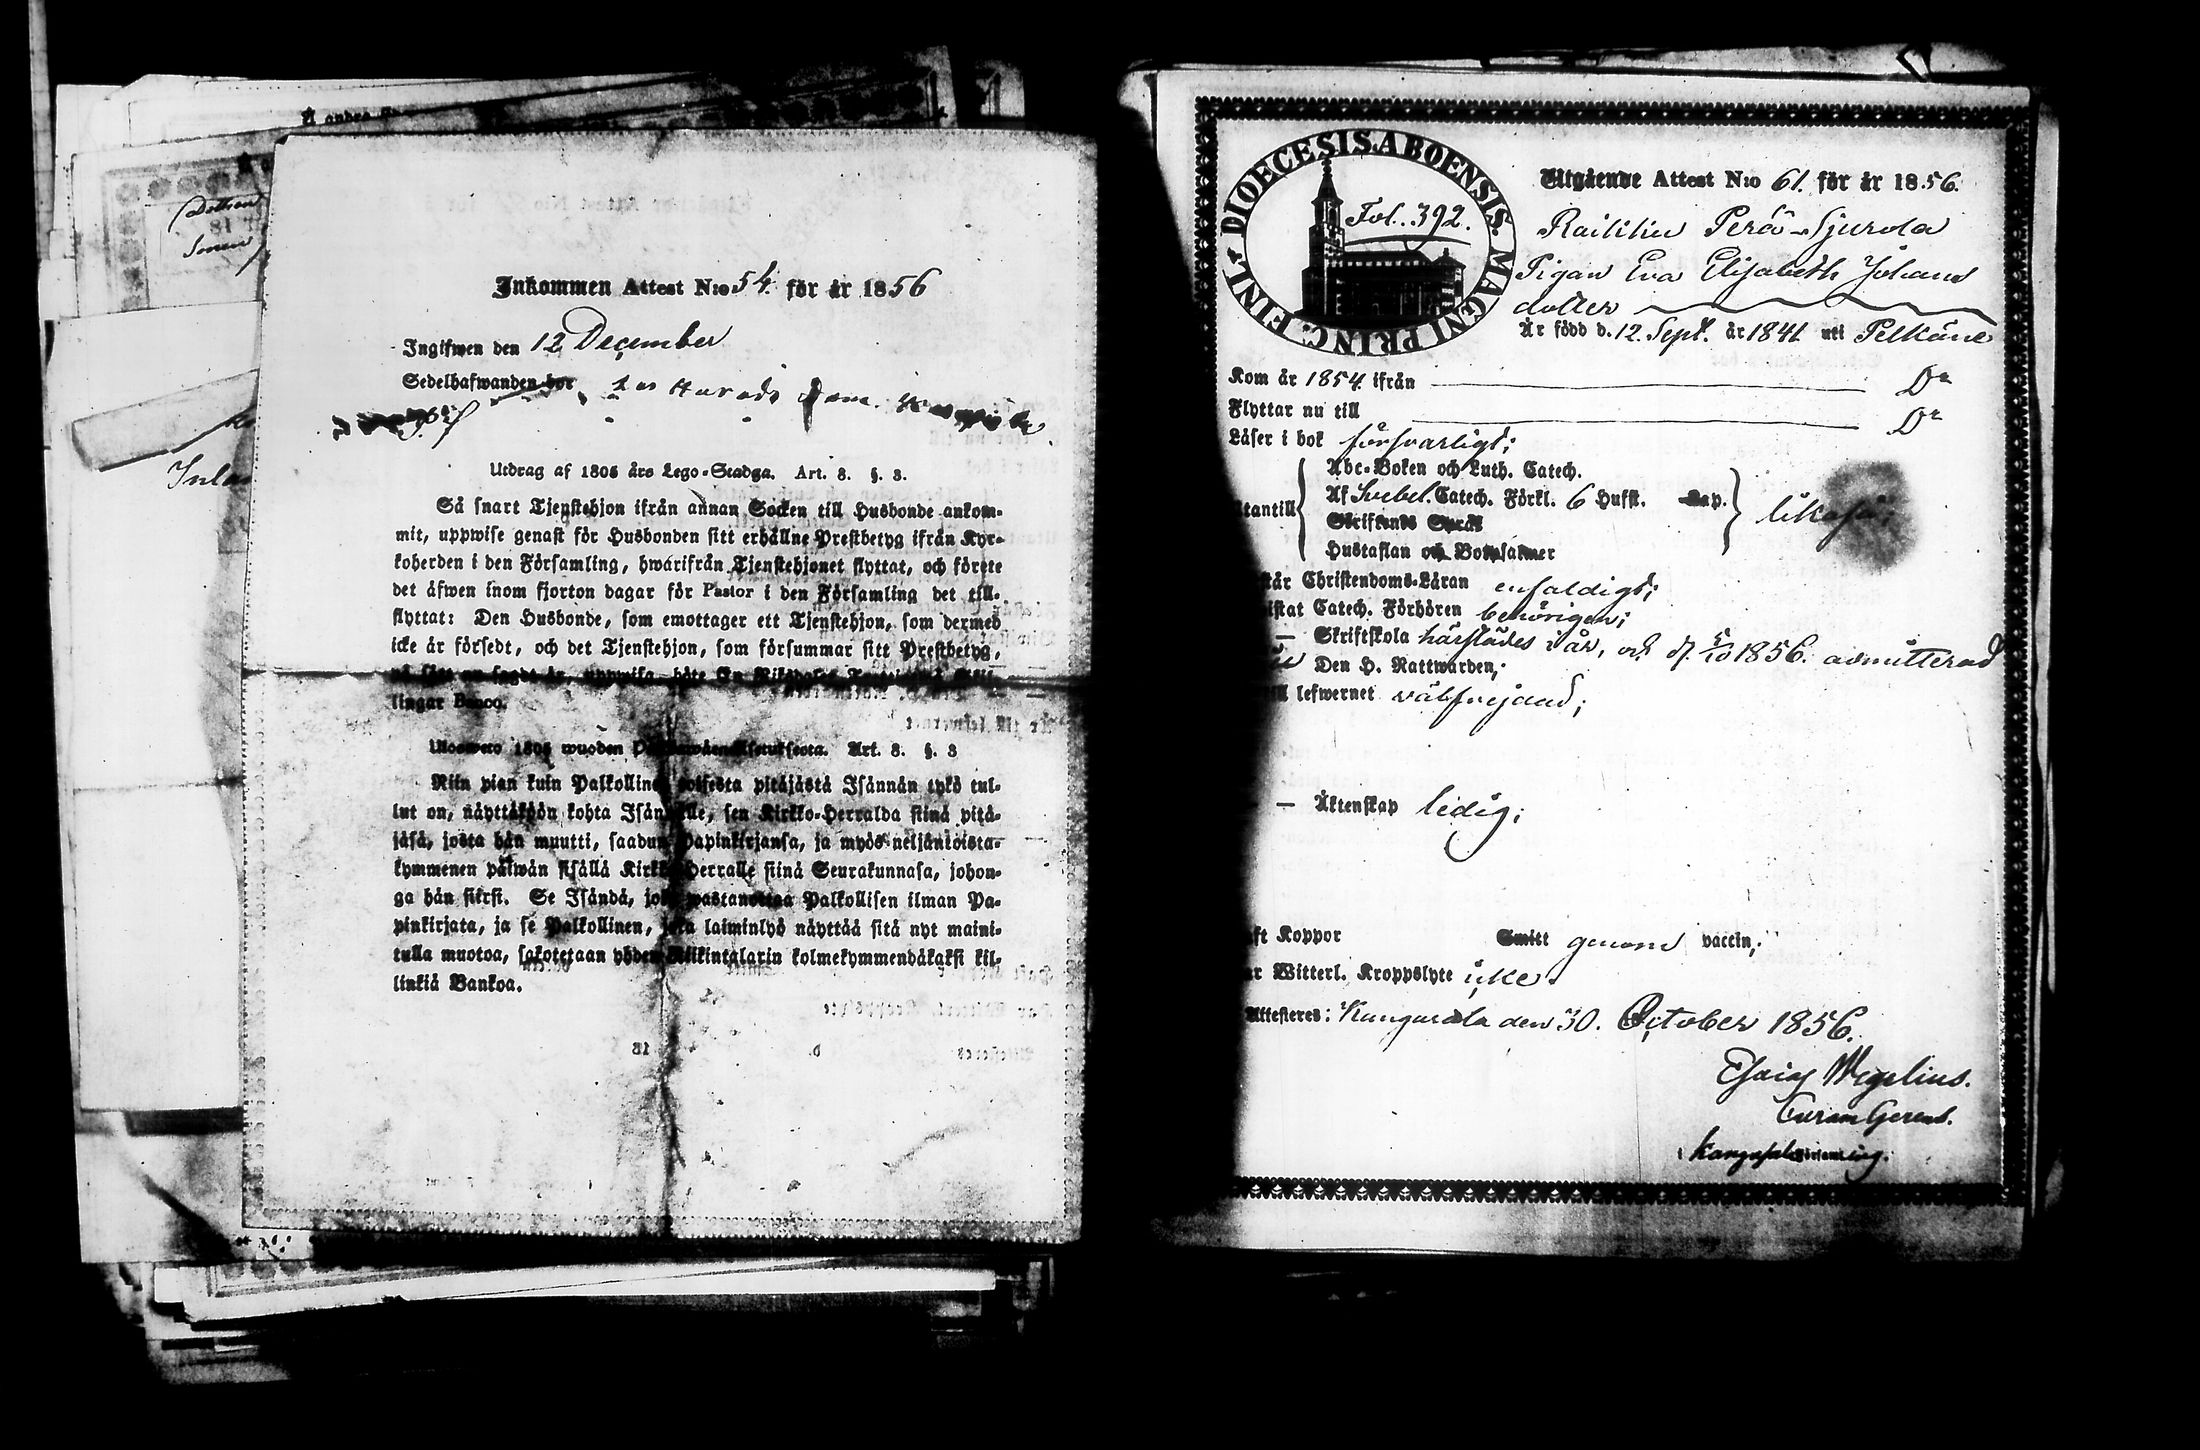 Inkommen Attest N:o 54. för år 1856
Ingifwen den 12 December
Sedelhafwanden bor
Utdrag af 1805 års Lego-Stadga. Art. 8. §. 3.
Så snart Tjenstehjon ifrån annan Socken till Husbonde ankom-
mit, uppwise genast för Husbonden sitt erhållne Prestbetyg ifrån Kyr-
koherden i den Församling, hwarifrån Tjenstehjonet flyttat, och förete
det äfwen inom fjorton dagar för Pastor i den Församling det till-
flyttat: Den Husbonde, som emottager ett Tjenstehjon, som dermed
icke är försedt, och det Tjenstehjon, som försummar sitt Prestbetyg,
på sätt nu sagdt är, uppwisa, böte En Riksdaler
lingar Banco.
Ulosweto 1805 wuoden Art. 8. §. 3
Niin pian kuin Palkollinen toisesta pitäjästä Isännän tykö tul-
lut on, näyttäköön kohta Isännälle, sen Kirkko-Herralda siinä pitä-
jäsä, josta hän muutti, saadun Papinkirjansa, ja myös neljäntoista-
kymmenen päiwän sisällä Kirkko-Herralle siinä Seurakunnasa, johon-
ga hän siirsi. Se Isändä, joka wastanottaa Palkollisen ilman Pa-
pinkirjata, ja se Palkollinen, joka laiminlyö näyttää sitä nyt maini-
tulla muotoa, sakotetaan yhden Riikintalarin kolmekymmendäkaksi kil-
linkiä Bankoa.
DIOECESIS ABOENSIS MAGNI PRINC. FINL.
Fol. 392.
Utgående Attest N:o 61. för år 1856.
Raikku Perä-Sjurola
Pigan Eva Elisabeth Johans
dotter
Är född d. 12. Sept. år 1841 uti Pelkäne
Kom år 1854 ifrån Do
Flyttar nu till Do
Läser i bok försvarligt;
Abc-Boken och Luth. Catech.
Utantill Af Svebel. Catech. Förkl. 6 Hufst. Kap. likaså;
Skriftens Språk
Hustaflan och Botpsalmer
står Christendoms-Läran enfaldigt;
istat Catech. Förhören behörigen;
— Skriftskola härstädes i år, och d. 5/10 1856. admitterad
Den H. Nattwarden;
till lefwernet välfrejdad;
— Äktenskap ledig;
ft Koppor Smitt genom vaccin;
ar Witterl. Kroppslyte icke.
Attesteres: Kangasala den 30. October 1856.
Esaias Wegelius.
Curam Gerens.
i Kangasala Församling.